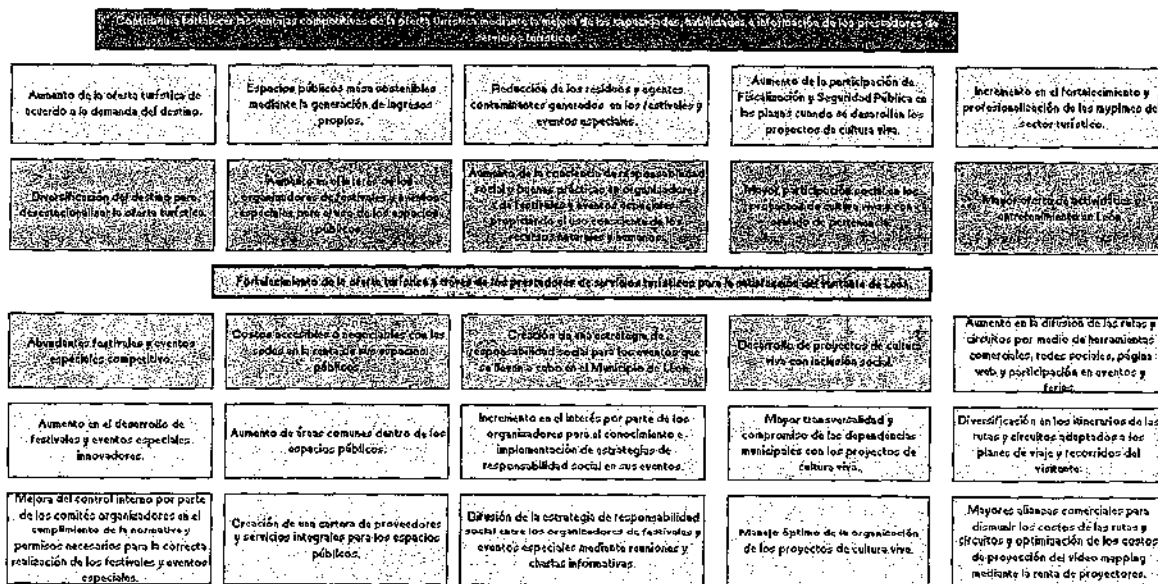 Contribuir a fortalecer las ventajas competitivas de la oferta turística mediante la mejora de las capacidades, habilidades e información de los prestadores de
servicios turísticos.
Aumento de la oferta turística de
acuerdo a la demanda del destino.
Espacios públicos más sostenibles
mediante la generación de ingresos
propios.
Reducción de los residuos y agentes
contaminantes generados en los festivales y
eventos especiales.
Aumento de la participación de
Fiscalización y Seguridad Pública en
las plazas cuando se desarrollan los
proyectos de cultura viva.
Incremento en el fortalecimiento y
profesionalización de las mypimes del
sector turístico.
Diversificación del destino para
desestacionalizar la oferta turística.
Aumento en el interés de los
organizadores de festivales y eventos
especiales para el uso de los espacios
públicos.
Aumento de la conciencia de responsabilidad
social y buenas prácticas en organizadores
de festivales y eventos especiales
propiciando el uso consciente de los
recursos naturales y humanos.
Mayor participación social en los
proyectos de cultura viva con
sentido de pertenencia.
Mayor oferta de actividades y
entretenimiento en León.
Fortalecimiento de la oferta turística a través de los prestadores de servicios turísticos para la satisfacción del visitante de León.
Abundantes festivales y eventos
especiales competitivo.
Costos accesibles o negociables con las
sedes en la renta de sus espacios
públicos.
Creación de una estrategia de
responsabilidad social para los eventos que
se llevan a cabo en el Municipio de León.
Desarrollo de proyectos de cultura
viva con inclusión social.
Aumento en la difusión de las rutas y
circuitos por medio de herramientas
comerciales, redes sociales, página
web y participación en eventos y
ferias.
Aumento en el desarrollo de
festivales y eventos especiales
innovadores.
Aumento de áreas comunes dentro de los
espacios públicos.
Incremento en el interés por parte de los
organizadores para el conocimiento e
implementación de estrategias de
responsabilidad social en sus eventos.
Mayor transversalidad y
compromiso de las dependencias
municipales con los proyectos de
cultura viva.
Diversificación en los itinerarios de las
rutas y circuitos adaptados a los
planes de viaje y recorridos del
visitante.
Mejora del control interno por parte
de los comités organizadores en el
cumplimiento de la normativa y
permisos necesarios para la correcta
realización de los festivales y eventos
especiales.
Creación de una cartera de proveedores
y servicios integrales para los espacios
públicos.
Difusión de la estrategia de responsabilidad
social entre los organizadores de festivales y
eventos especiales mediante reuniones y
charlas informativas.
Manejo óptimo de la organización
de los proyectos de cultura viva.
Mayores alianzas comerciales para
disminuir los costos de las rutas y
circuitos y optimización de los costos
de proyección del video mapping
mediante la renta de proyectores.